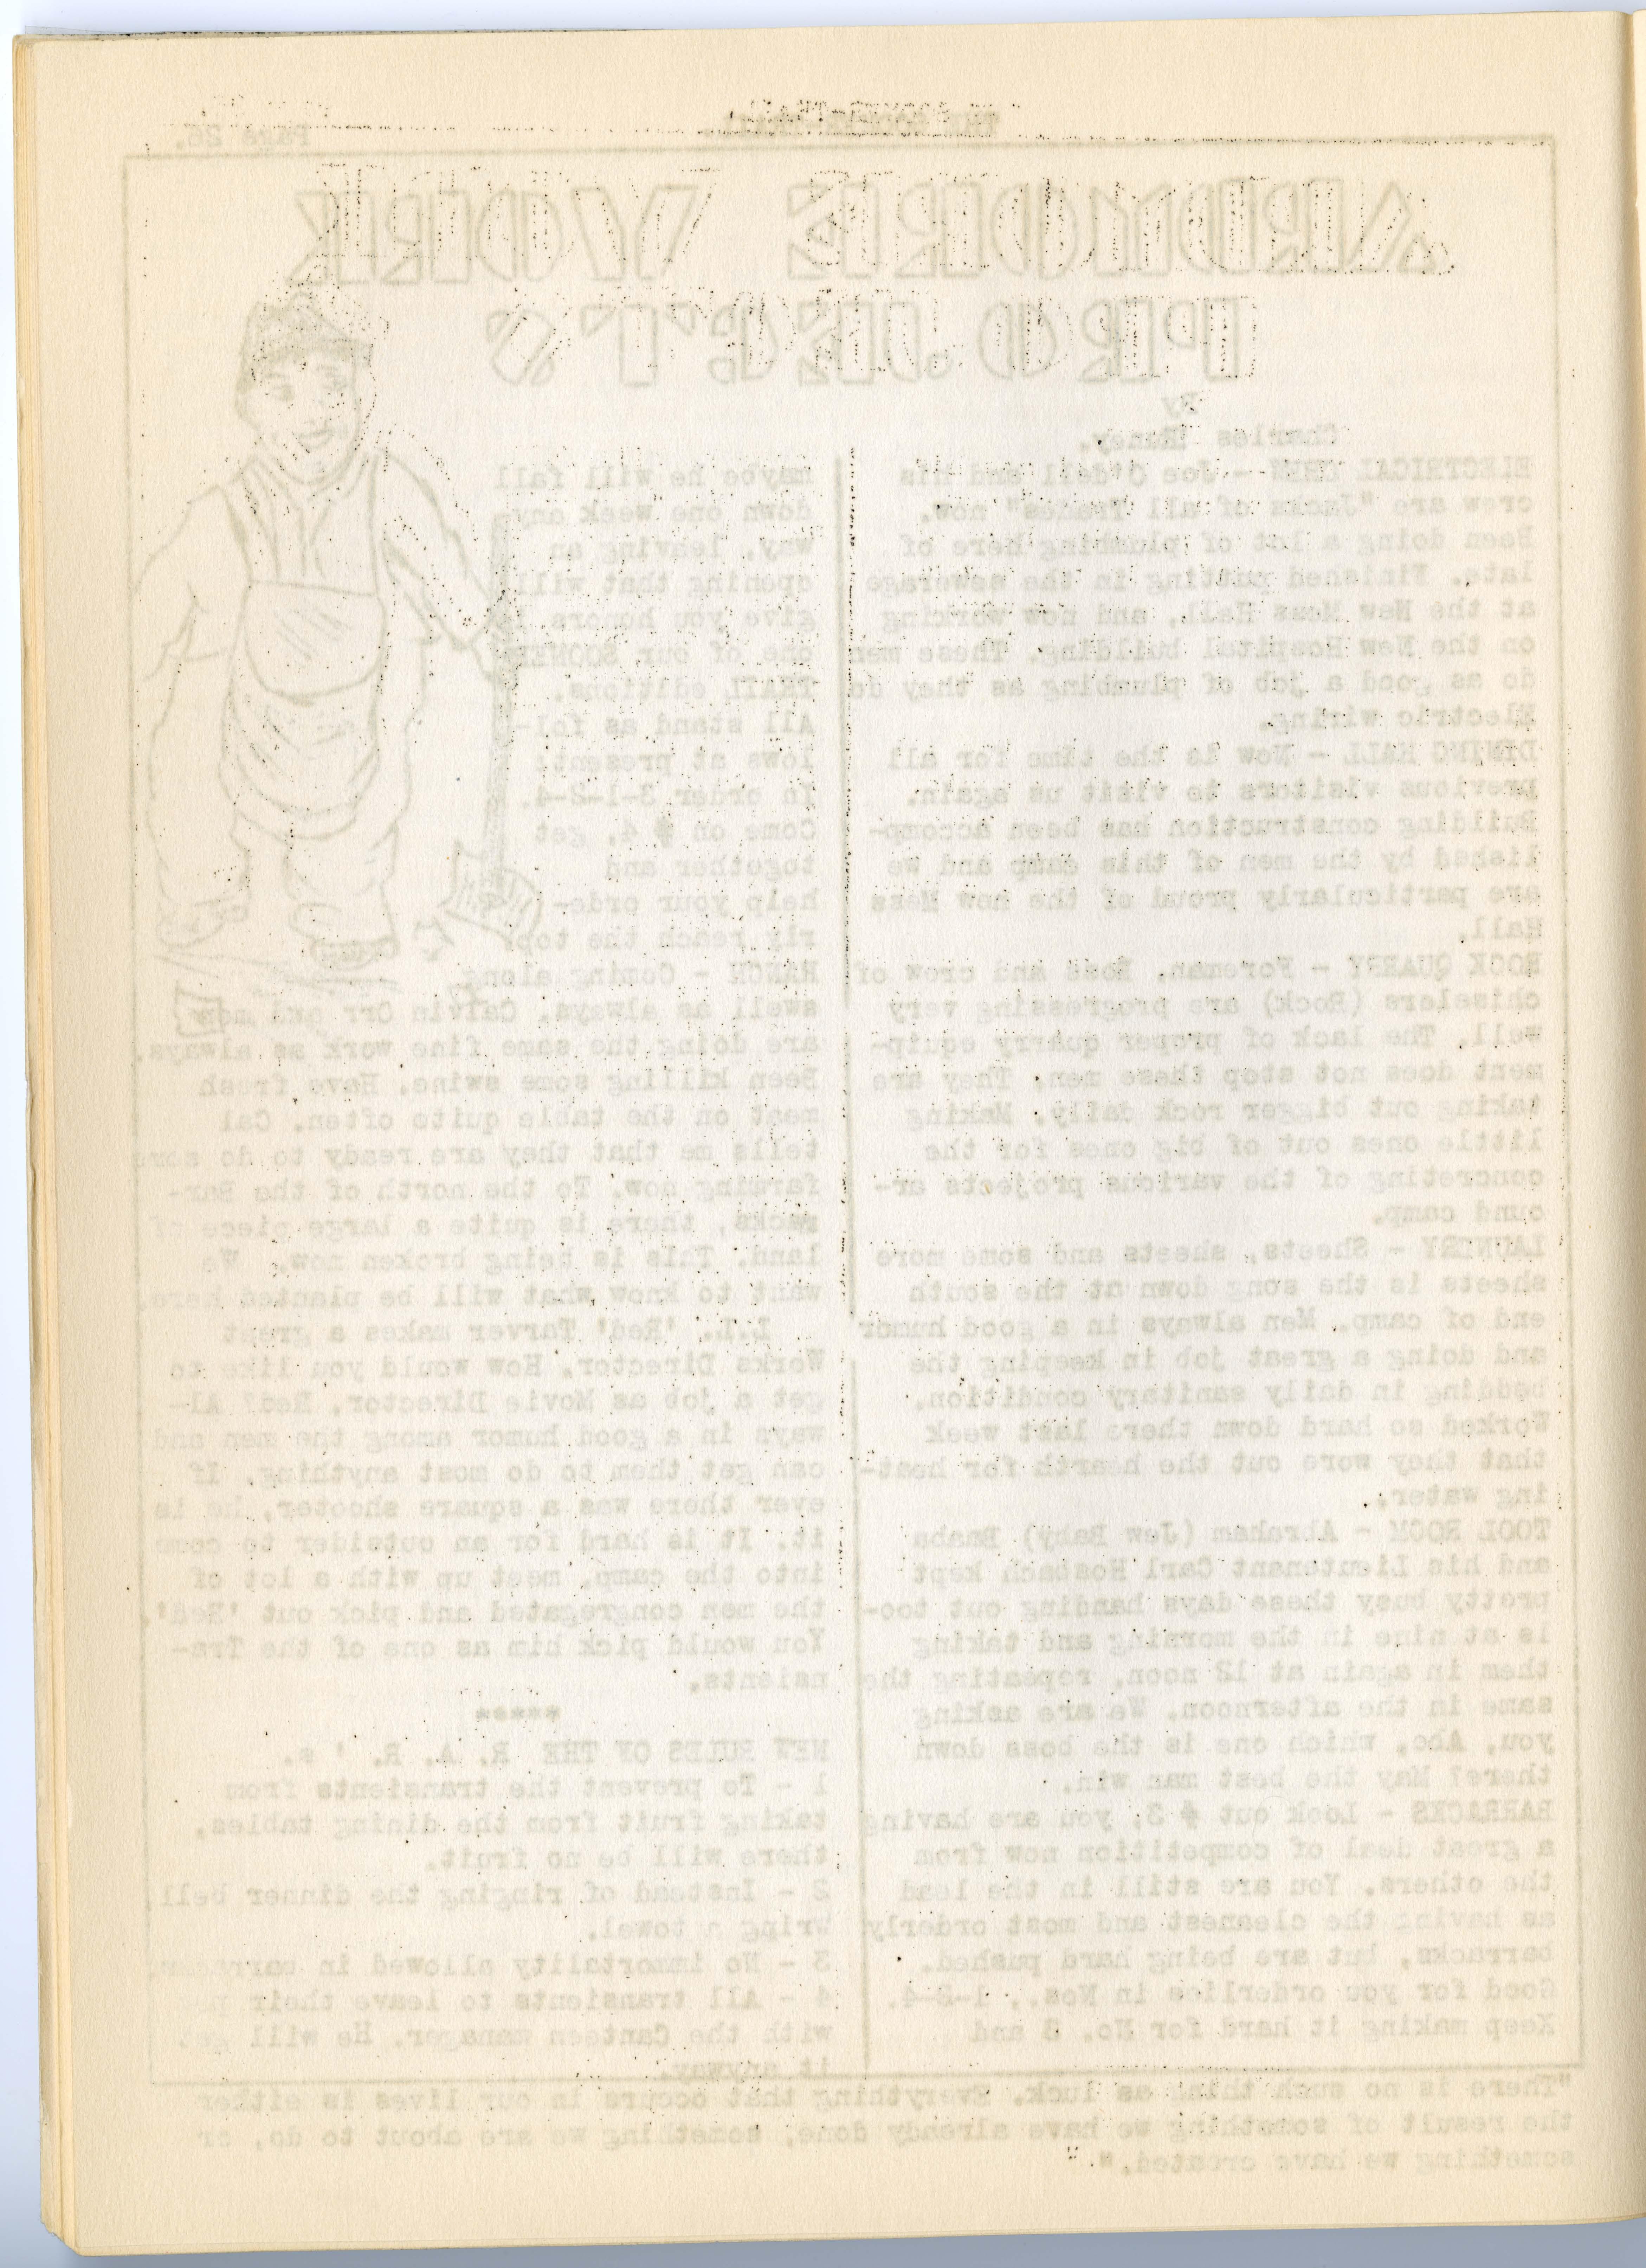 THE SOONER-TRAIL
Page 26.
ARDMORE WORK
PROJECTS
By
Charles Haney.
ELECTRICAL - Joe O'dell and his
crew are "Jacks of all Trades" now.
Been doing a lot of plumbing here of
late. Finished putting in the sewerage
at the New Mess Hall, and now working
on the New Hospital building. These men
do as good a job of plumbing as they do
Electric wiring.
DINING HALL - Now is the time for all
previous visitors to visit us again.
Building construction has been accomp-
lished by the men of this camp and we
are particularly proud of the new Mess
Hall.
ROCK QUARRY - Foreman, Ross and crew of
chiselers (Rock) are progressing very
well. The lack of proper quarry equip-
ment does not stop these men. They are
taking out bigger rock daily. Making
little ones out of big ones for the
concreting of the various projects ar-
ound camp.
LAUNDRY - Sheets, sheets and some more
sheets is the song down at the south
end of camp. Men always in a good humor
and doing a great job in keeping the
bedding in daily sanitary condition.
Worked so hard down there last week
that they wore out the hearth for heat-
ing water.
TOOL ROOM - Abraham (Jew Baby) Baaba
and his Lieutenant Carl Hosbach kept
pretty busy these days handing out too-
ls at nine in the morning and taking
them in again at 12 noon, repeating the
same in the afternoon. We are asking
you, Abe, which one is the boss down
there? May the best man win.
BARRACKS - Look out # 3; you are having
a great deal of competition now from
the others. You are still in the lead
as having the cleanest and most orderly
barracks, but are being hard pushed.
Good for you orderlies in Nos., 1-2-4.
Keep making it hard for No. 3 and
maybe he will fall
down one week any-
way, leaving an
opening that will
give you honors in
one of our SOONER
TRAIL editions.
All stand as fol-
lows at present:
In order 3-1-2-4.
Come on # 4, get
together and
help your orde-
rly reach the top.
RANCH - Coming along
swell as always. Calvin Orr and men
are doing the same fine work as always.
Been killing some swine. Have fresh
meat on the table quite often. Cal
tells me that they are ready to do some
farming now. To the north of the Bar-
racks, there is quite a large piece of
land. This is being broken now. We
want to know what will be planted here.
L.T. 'Red' Tarver makes a great
Works Director. How would you like to
get a job as Movie Director, Red? Al-
ways in a good humor among the men and
can get them to do most anything. If
ever there was a square shooter, he is
it. It is hard for an outsider to come
into the camp, meet up with a lot of
the men congregated and pick out 'Red'.
You would pick him as one of the Tra-
nsients.
*****
NEW RULES OF THE R. A. R. 's.
1 - To prevent the transients from
taking fruit from the dining tables,
there will be no fruit.
2 - Instead of ringing the dinner bell
Wring a towel.
3 - No immortality allowed in
4 - All transients to leave their
with the Canteen manager. He will get
it anyway.
"There is no such thing as luck. Everything that occurs in our lives is either
the result of something we have already done, something we are about to do, or
something we have created."